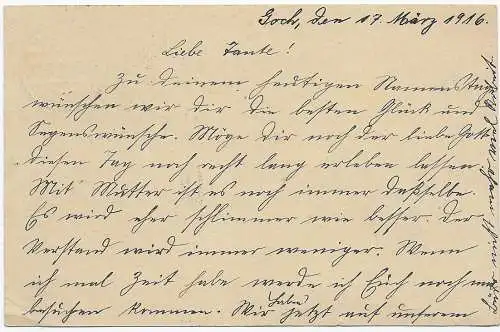 Goch, den 17. März 1916.
Liebe Tante!
Zu deinem heutigen Namenstag
wünschen wir Dir die besten Glück und
Segenswünsche. Möge Dir noch der liebe Gott
diesen Tag noch recht lang erleben lassen.
Mit Mutter ist es noch immer daßselbe.
Es wird eher schlimmer wie besser. Der
Verstand wird immer weniger. Wenn
ich mal Zeit habe werde ich Euch noch mal
besuchen kommen. Wir haben jetzt auf unserem